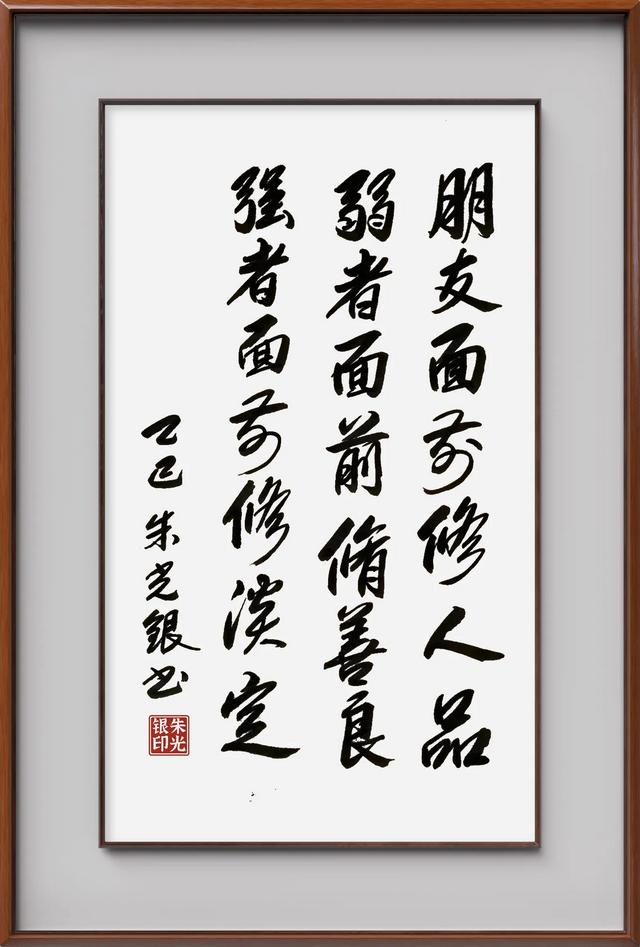 朋友面前修人品
弱者面前脩善良
强者面前修淡定
乙巳朱光银书
朱光银印